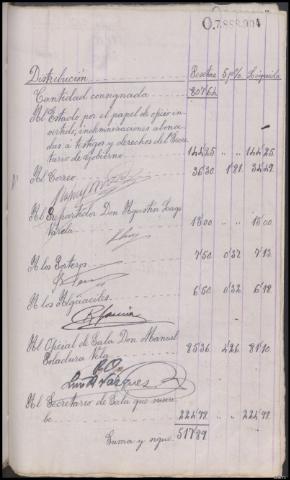 0.7.888.904
Distribución Pesetas 5 p% Líquido
Cantidad consignada 807'62
Al Estado por el papel de oficio in-
vertido, indemnizaciones abona-
das a testigos y derechos del Secre-
tario de Gobierno 144'25 " " 144'25
Al Correo 36'30 1'81 34'49
Al Repartidor Don Agustín
Varela 18'00 " " 18'00
A los Porteros 7'50 0'37 7'13
A los Alguaciles 6'50 0'32 6'18
R García
Al Oficial de Sala Don Manuel
Vela 85'36 4'26 81'10
P.O.
Luis Vazquez
Al Secretario de Sala que suscri-
be 224'98 " " 224'98
Suma y sigue 517'89